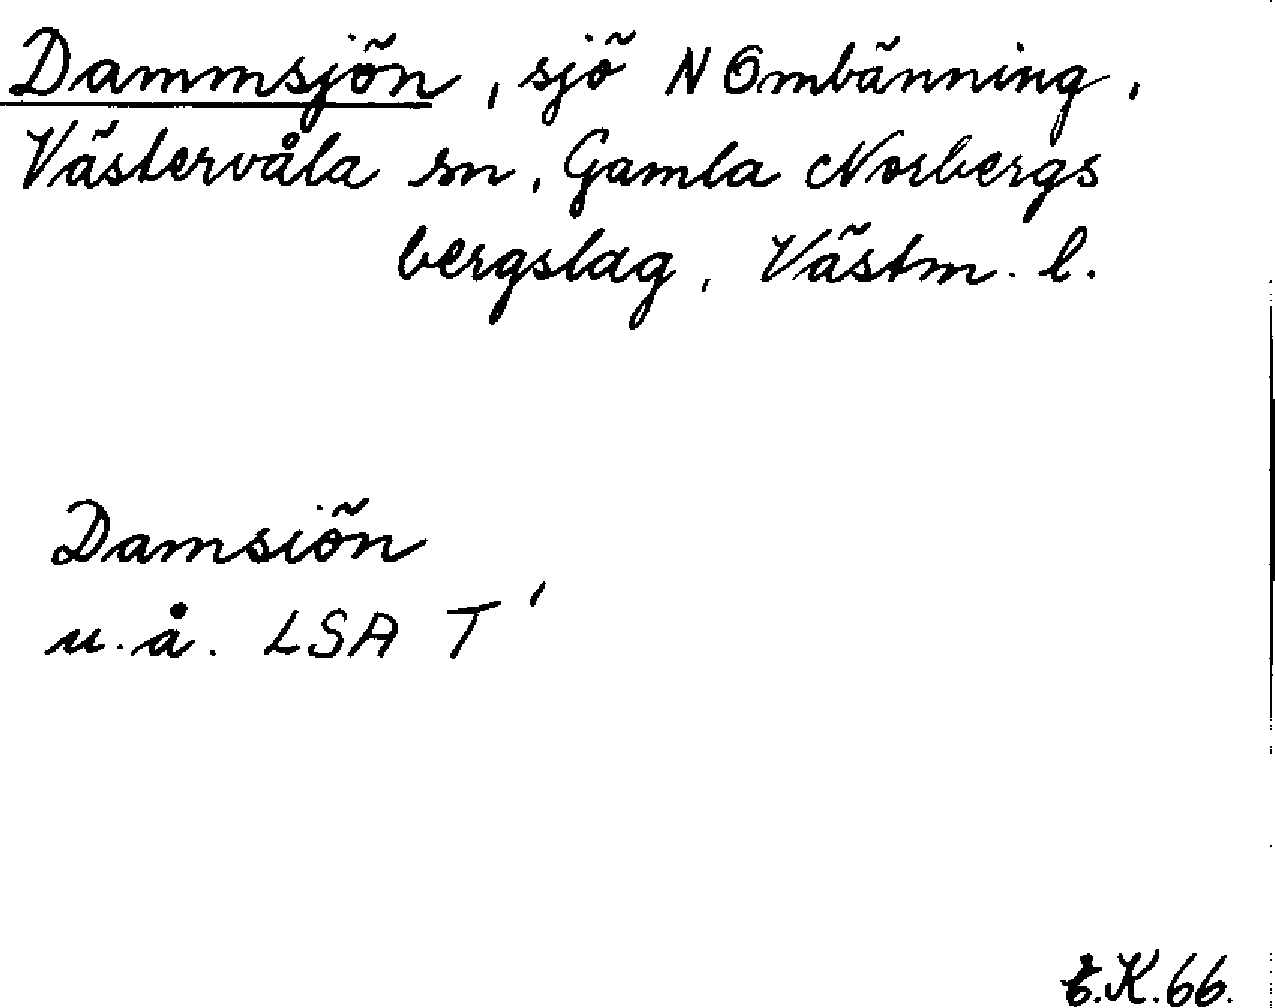 Dammsjön, sjö N Ombänning,
Västervåla sn, Gamla Norbergs
bergslag, Västm. l.
Damsiön
u.å. LSA T'
K.66.